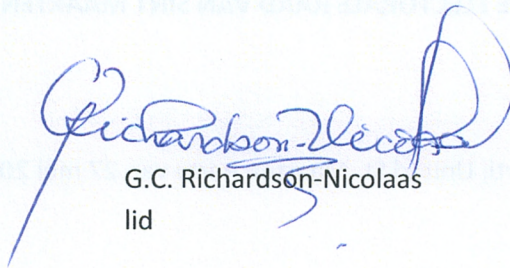 Richardson-Nicolaas
G.C. Richardson-Nicolaas
lid